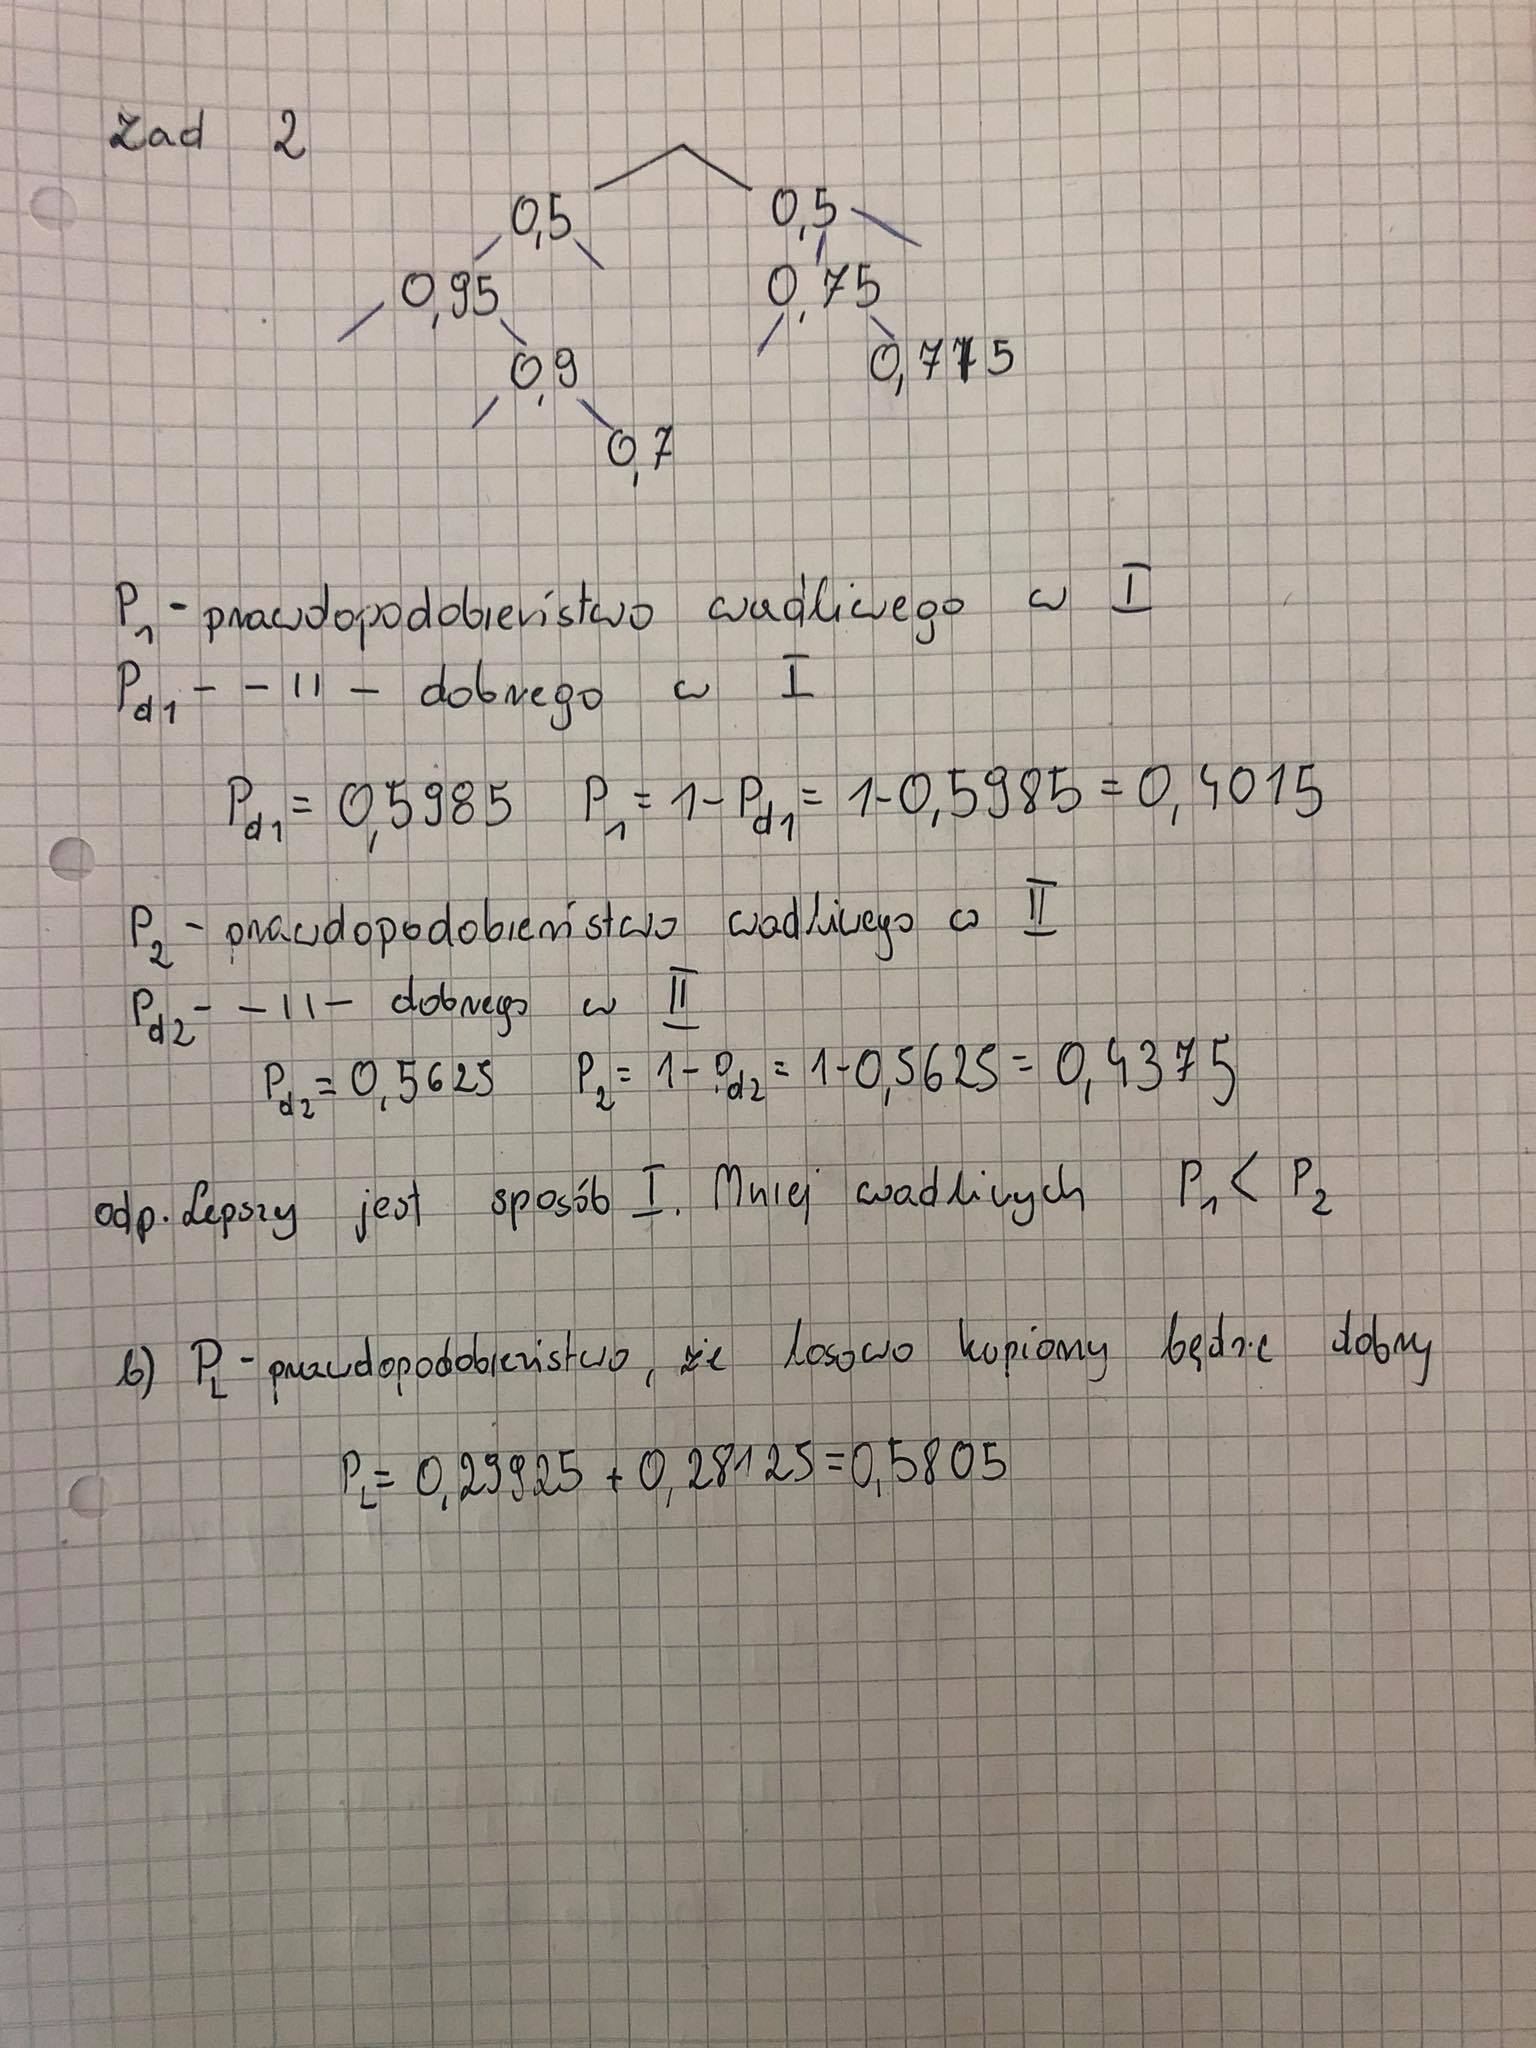 Zad 2
0,5 0,5
0,95 0,75
0,9 0,775
0,7
P1 - prawdopodobieństwo wadliwego w I
Pd1 - -11- dobrego w I
Pd1 = 0,5985 P1 = 1-Pd1 = 1-0,5985 = 0,4015
P2 - prawdopodobieństwo wadliwego w II
Pd2 - -11- dobrego w II
Pd2 = 0,5625 P2 = 1-Pd2 = 1-0,5625 = 0,4375
odp. Lepszy jest sposób I. Mniej wadliwych P1 < P2
b) PL - prawdopodobieństwo, że losowo kupiony będzie dobry
PL = 0,29925 + 0,28125 = 0,5805